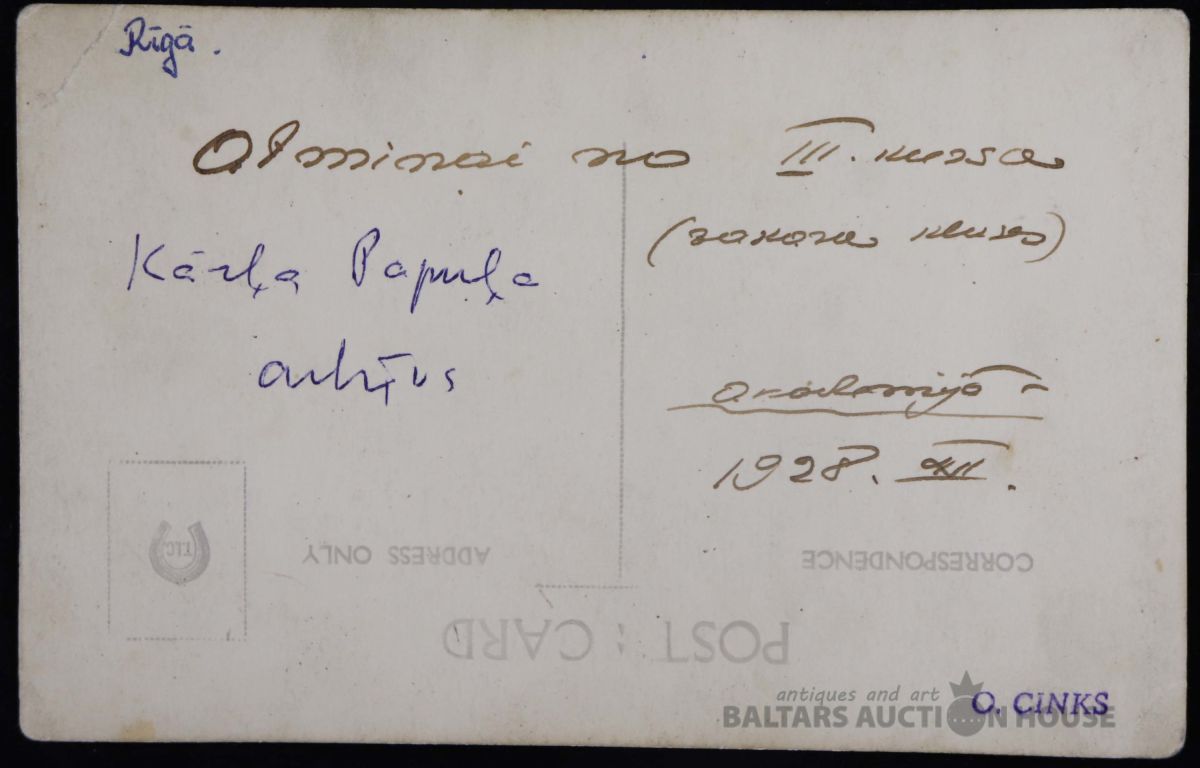 Rīgā.
Atmiņai no III. kursa
(vakara kurss)
Kārļa Papuļa
arhīvs
akadēmijā –
1928. XII.
TLC
ADDRESS ONLY
CORRESPONDENCE
POST : CARD
antiques and art
BALTARS AUCTION HOUSE
O. CINKS